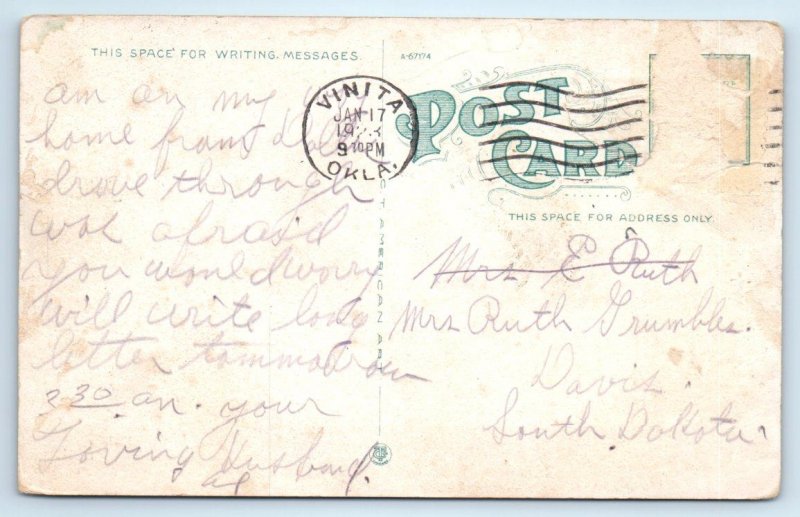 THIS SPACE FOR WRITING MESSAGES.
A-67174
am on my way
home from
drove through
was afraid
you would worry
will write long
letter tommorrow
2 30 am. your
Loving Husband.
VINITA
JAN 17
9 30 PM
OKLA.
POST
CARD
THIS SPACE FOR ADDRESS ONLY.
Mrs E Ruth
Mrs Ruth Grumbles.
Davis.
South Dakota